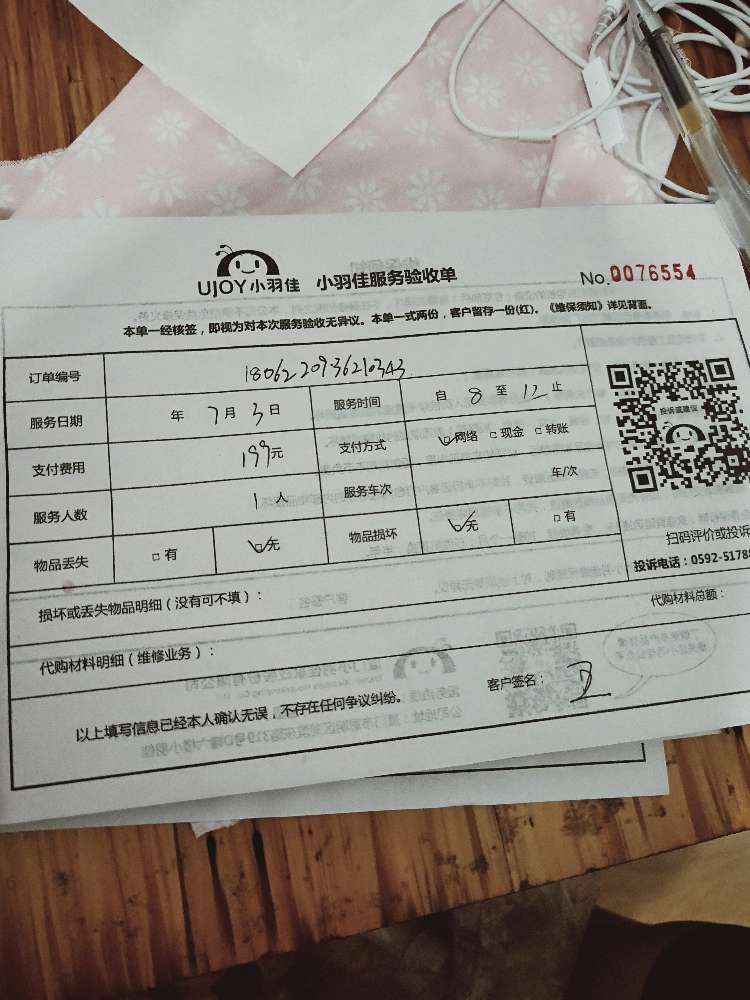 UJOY小羽佳 小羽佳服务验收单 No.0076554
本单一经核签，即视为对本次服务验收无异议。本单一式两份，客户留存一份(红)。《维保须知》详见背面。
订单编号 1806220936210343
服务日期 年 7月3日 服务时间 自 8 至 12 止
支付费用 199元 支付方式 ☑网络 □现金 □转账
服务人数 1人 服务车次 车/次
物品丢失 □有 ☑无 物品损坏 ☑无 □有
投诉或建议
扫码评价或投诉
投诉电话：0592-5178
损坏或丢失物品明细（没有可不填）：
代购材料明细（维修业务）： 代购材料总额：
以上填写信息已经本人确认无误，不存在任何争议纠纷。 客户签名：